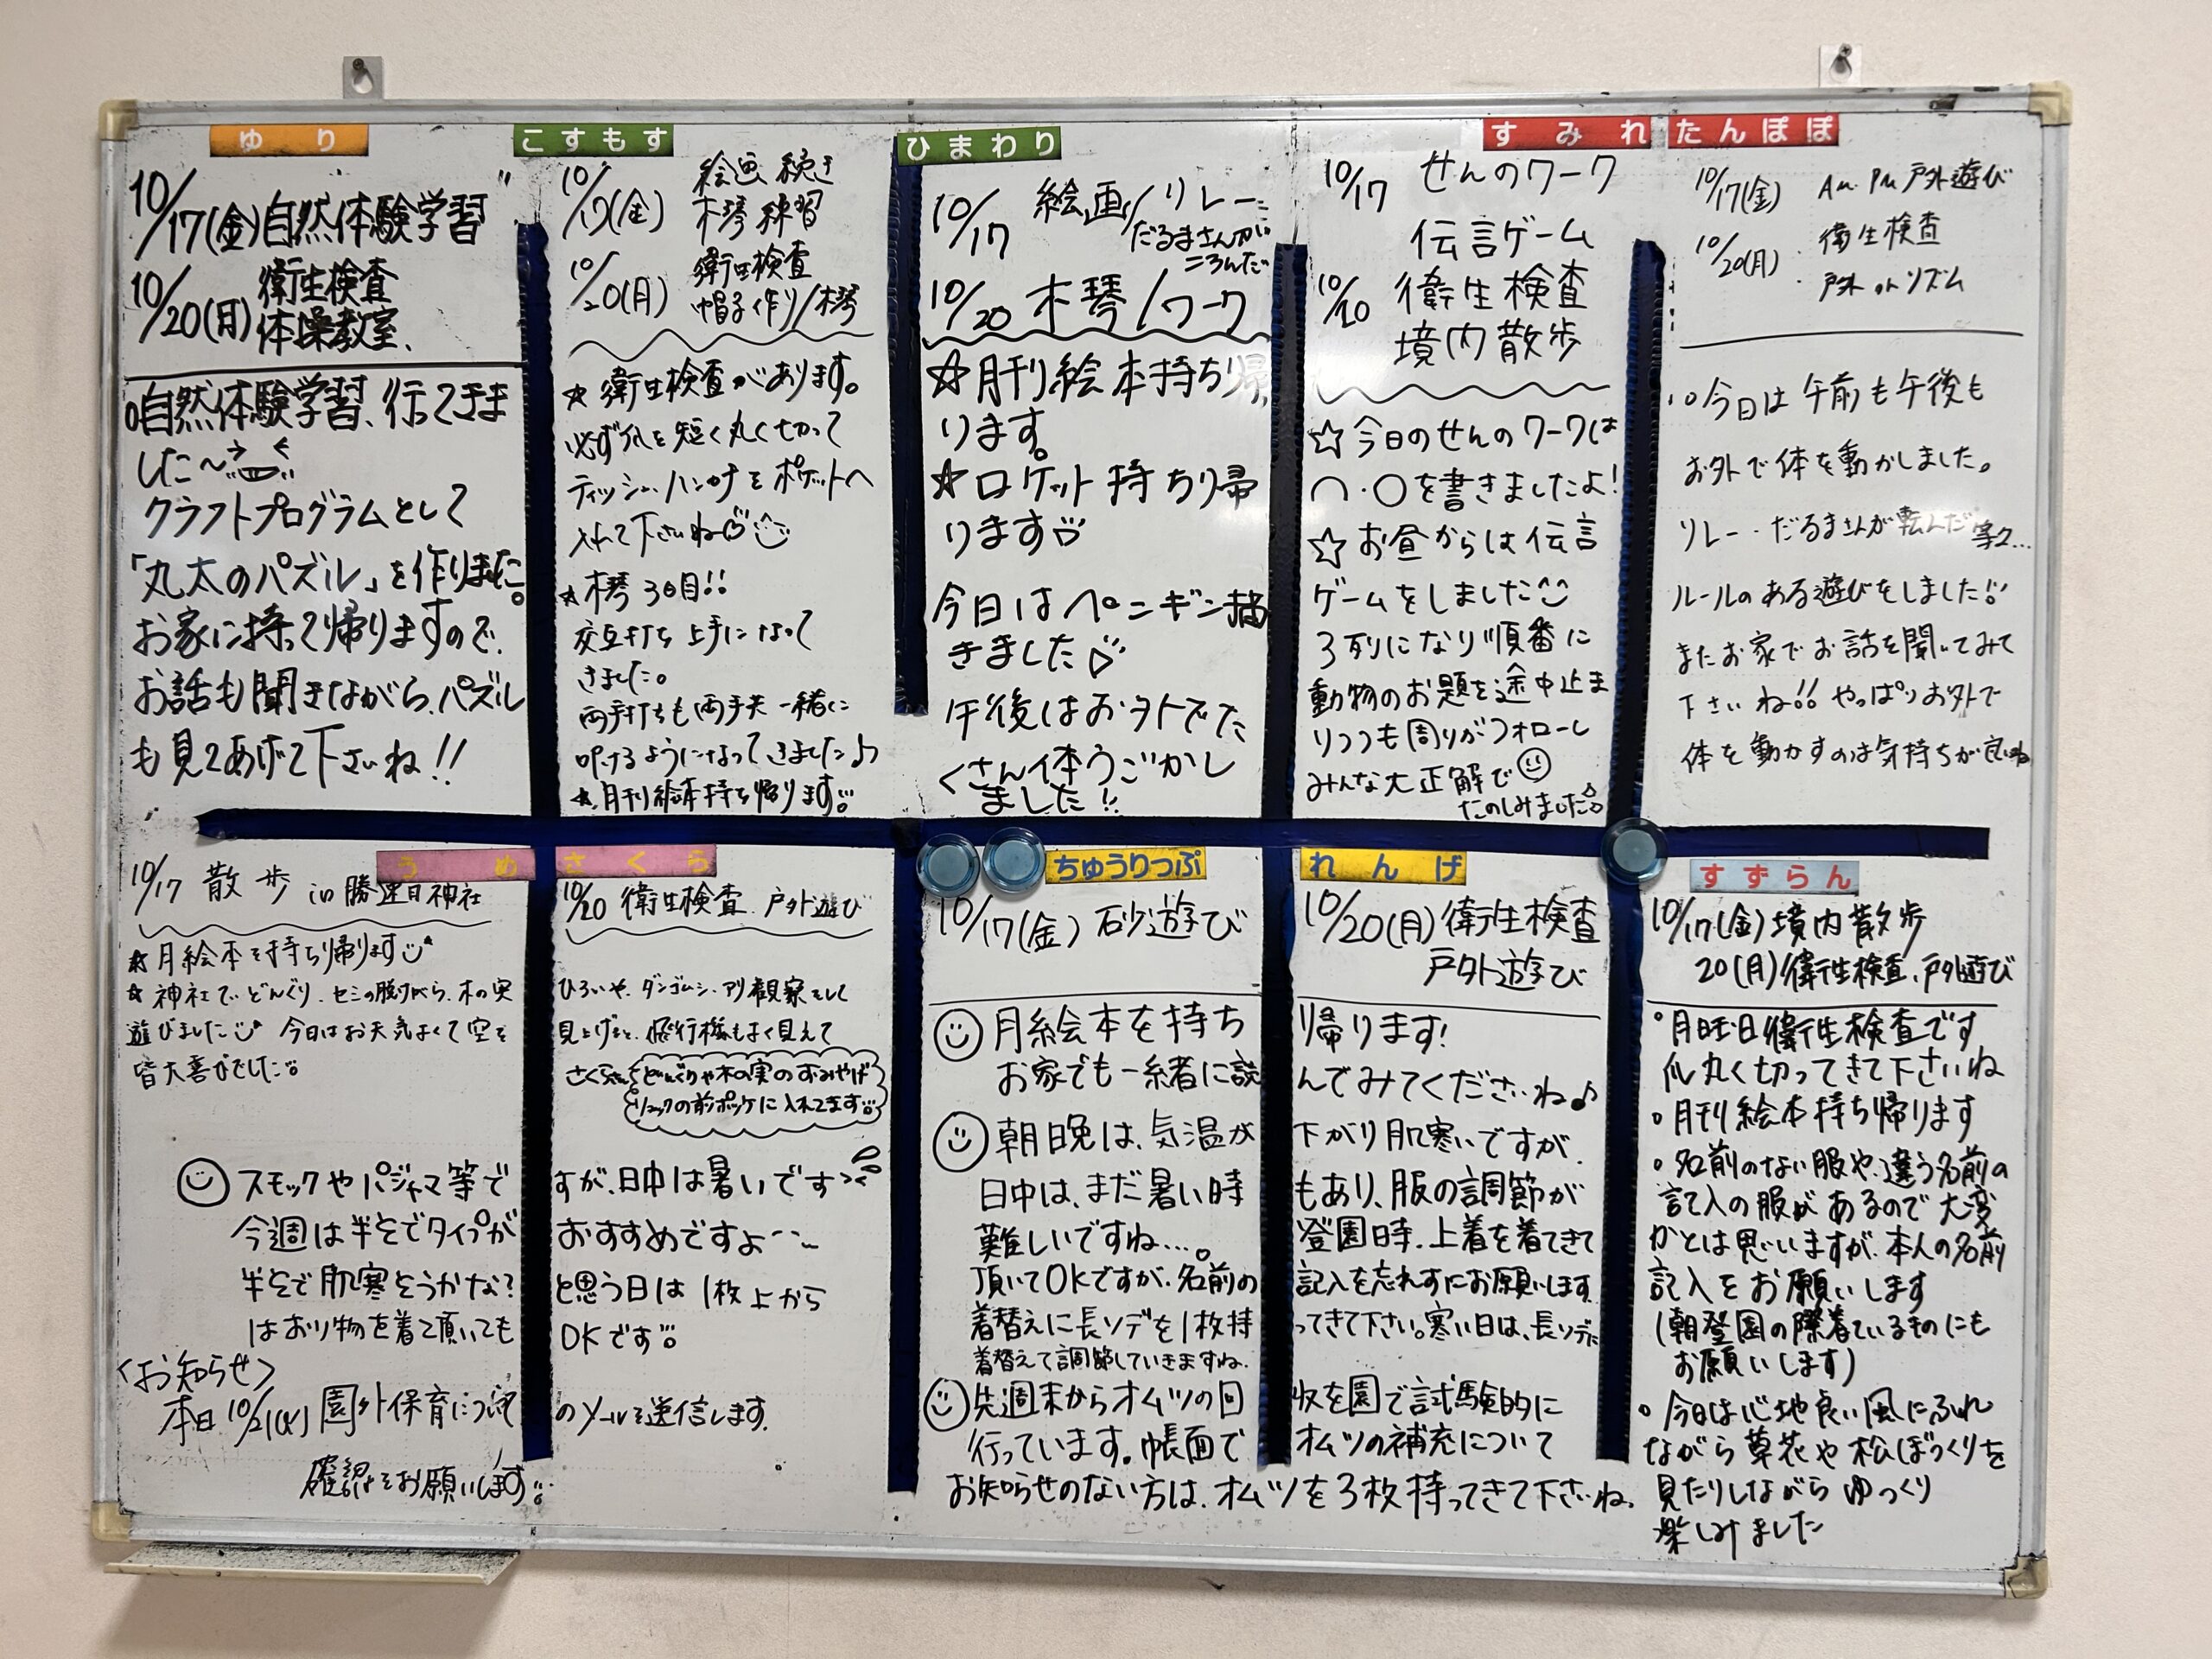 ゆり
10/17(金)自然体験学習
10/20(月)衛生検査
体操教室、
自然体験学習、行ってきま
した〜
クラフトプログラムとして
「丸太のパズル」を作りました。
お家に持って帰りますので、
お話も聞きながら、パズル
も見てあげて下さいね!!
こすもす
10/17(金) 絵画 続き
木琴 練習
10/20(月) 衛生検査
帽子作り/木琴
☆ 衛生検査があります。
必ず爪を短く丸く切って
ティッシュ、ハンカチをポケットへ
入れて下さいね
☆木琴3日目!!
交互打ち上手になって
きました。
両手打ちも両手共一緒に
叩けるようになってきました♪
☆月刊絵本持ち帰ります
ひまわり
10/17 絵画/リレー
だるまさんが
ころんだ
10/20 木琴/ワーク
☆月刊絵本持ち帰
ります。
☆ロケット持ち帰
ります
今日はペンギン描
きました
午後はお外でた
くさん体うごかし
ました!!
すみれ
10/17 せんのワーク
伝言ゲーム
10/20 衛生検査
境内散歩
☆今日のせんのワークは
⌒・○を書きましたよ!
☆お昼からは伝言
ゲームをしました
3列になり順番に
動物のお題を途中止ま
りつつも周りがフォローし
みんな大正解で
たのしみました
たんぽぽ
10/17(金) Am.Pm 戸外遊び
10/20(月) 衛生検査
戸外 リズム
今日は午前も午後も
お外で体を動かしました。
リレー・だるまさんが転んだ等々…
ルールのある遊びをしました!!
またお家でお話を聞いてみて
下さいね!! やっぱりお外で
体を動かすのは気持ちが良いね
うめ さくら
10/17 散歩 in 勝速日神社 10/20 衛生検査 戸外遊び
☆月絵本を持ち帰ります
☆神社でどんぐり、セミの脱けがら、木の実 ひろいや、ダンゴムシ、アリ観察をして
遊びました 今日はお天気よくて空を 見上げると、飛行機もよく見えて
皆大喜びでした
さくらぐみ どんぐりや木の実のおみやげ
リュックの前ポッケに入れてます
スモックやパジャマ等で すが、日中は暑いです
今週は半そでタイプが おすすめですよ〜
半そで肌寒そうかな? と思う日は1枚上から
はおり物を着て頂いても OKです
<お知らせ>
本日10/21(火)園外保育について のメールを送信します。
確認をお願いします
ちゅうりっぷ れんげ
10/17(金) 砂遊び 10/20(月)衛生検査
戸外遊び
月絵本を持ち 帰ります!
お家でも一緒に読 んでみてくださいね♪
朝晩は、気温が 下がり肌寒いですが、
日中は、まだ暑い時 もあり、服の調節が
難しいですね…。 登園時、上着を着てきて
頂いてOKですが、名前の 記入を忘れずにお願いします
着替えに長ソデを1枚持 ってきて下さい。寒い日は、長ソデに
着替えて調節していきますね。
先週末からオムツの回 収を園で試験的に
行っています。帳面で オムツの補充について
お知らせのない方は、オムツを3枚持ってきて下さいね。
すずらん
10/17(金)境内散歩
20(月)衛生検査、戸外遊び
°月曜日衛生検査です
爪丸く切ってきて下さいね
°月刊絵本持ち帰ります
°名前のない服や、違う名前の
記入の服があるので大変
かとは思いますが、本人の名前
記入をお願いします
(朝登園の際着ているものにも
お願いします)
°今日は心地良い風にふれ
ながら草花や松ぼっくりを
見たりしながらゆっくり
楽しみました